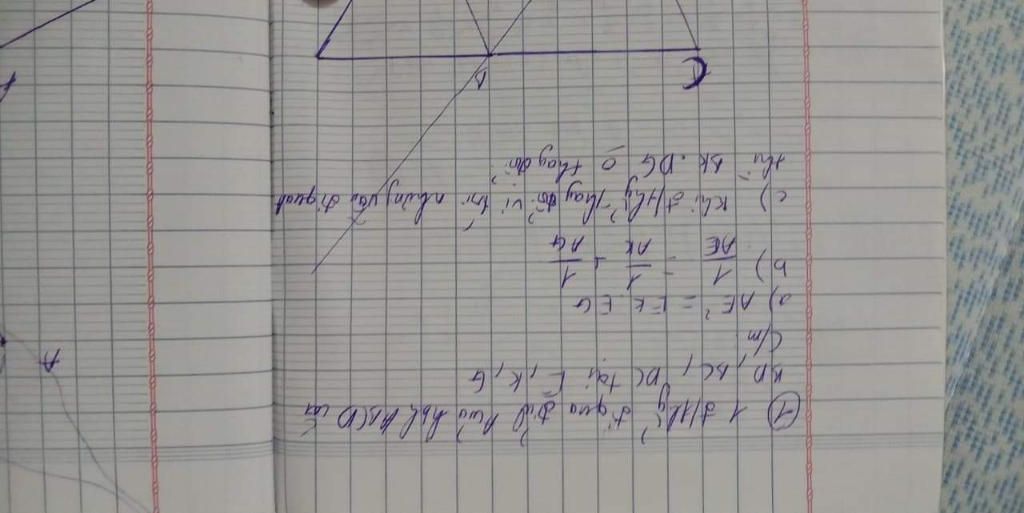 ① 1 đ/thg̉ đi qua đỉnh A của hbh ABCD cắt
BD, BC, DC tại E, K, G
C/m
a) AE² = EK.EG
b) 1/AE = 1/AK + 1/AG
c) Khi đ/thg̉ thay đổi vị trí nhưng vẫn đi qua A
thì BK.DG o thay đổi
A
B
C